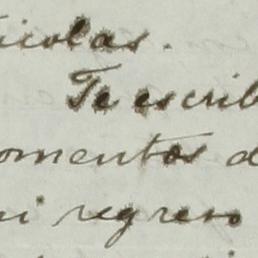 icolas.
Te escrib
omentos d
mi regreso